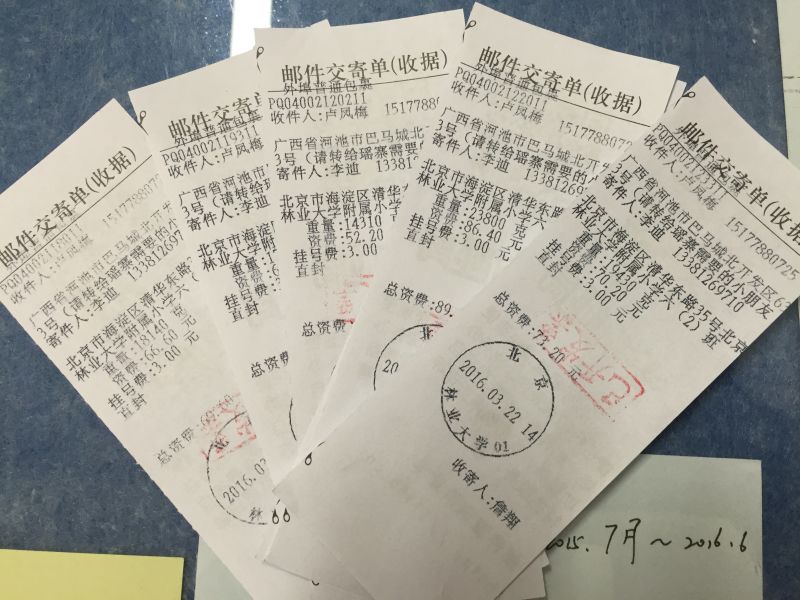 邮件交寄单(收据)
外埠普通包裹
PQ04002018311
收件人:卢凤梅 15177880725
广西省河池市巴马城北
3号(请转给瑶寨需要的
寄件人:李迪 133812697
北京市海淀区清华东路
林业大学附属小学六
重量:18140 克
资费:66.60 元
挂号费:3.00 元
直封
总资费:69.60
北
2016.03
林
邮件交寄单(收据)
外埠普通包裹
PQ04002119311
收件人:卢凤梅
广西省河池市
3号(请转给瑶
寄件人:李迪
北京市海淀区
林业大学附
重量:
资费:
挂号费:
直封
总资费:
邮件交寄单(收据)
外埠普通包裹
PQ04002120211
收件人:卢凤梅 15177880
广西省河池市巴马城北
3号(请转给瑶寨需要的
寄件人:李迪 1338126
北京市海淀区清华
林业大学附属小学
重量:14310
资费:52.20
挂号费:3.00
直封
总资费:
邮件交寄单(收据)
外埠普通包裹
PQ04002122011
收件人:卢凤梅 1517788072
广西省河池市巴马城北开
3号(请转给瑶寨需要的
寄件人:李迪 133812697
北京市海淀区清华东路
林业大学附属小学六
重量:23800 克
资费:86.40 元
挂号费:3.00 元
直封
总资费:89.
20
邮件交寄单(收据)
外埠普通包裹
收件人:卢凤梅 15177880725
广西省河池市巴马城北开发区62
3号(请转给瑶寨需要的小朋友
寄件人:李迪 13381269710
北京市海淀区清华东路35号北京
林业大学附属小学六(2)班
重量:19430 克
资费:70.20 元
挂号费:3.00 元
直封
总资费:73.20 元
北京
2016.03.22 14
林业大学01
收寄人:詹翔
2015.7月~2016.6